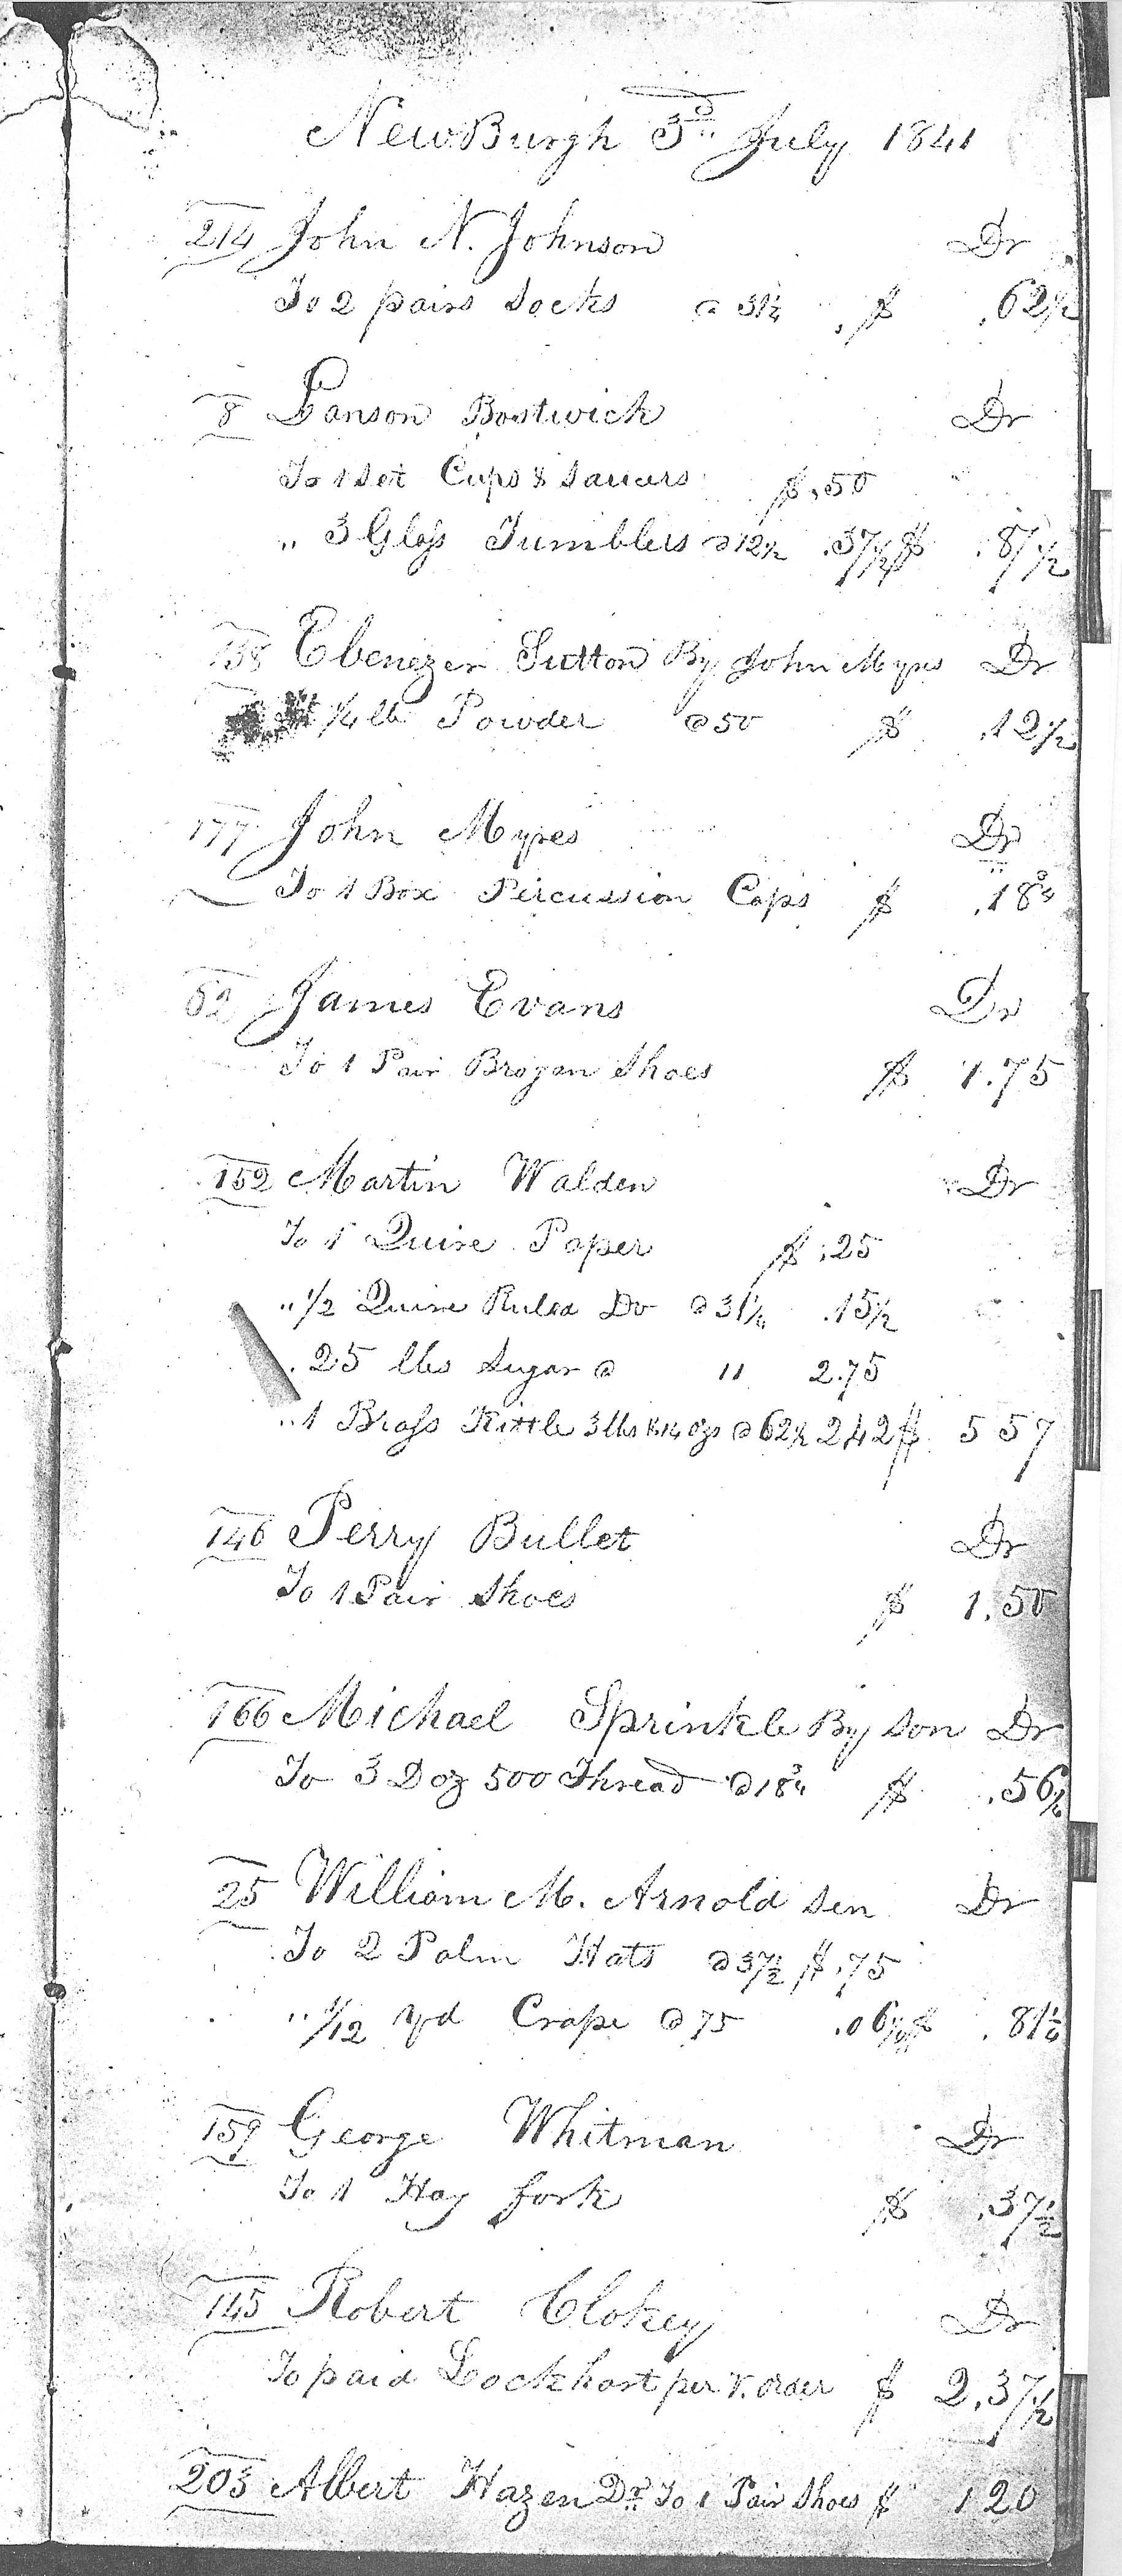 NewBurgh 3d July 1841
214 John N. Johnson Dr
To 2 pairs Socks @ 31¼ $ .62½
8 Lanson Bostwick Dr
To 1 Set Cups & Saucers $.50
" 3 Glass Tumblers @ 12½ .37½ $ .87½
158 Ebenezer Sutton By John Myres Dr
¼ lb Powder @ 50 $ .12½
177 John Myres Dr
To 1 Box Percussion Caps $ .18¾
62 James Evans Dr
To 1 Pair Brogan Shoes $ 1.75
152 Martin Walden Dr
To 1 Quire Paper $ .25
" ½ Quire Ruled Do @ 31¼ .15½
" 25 lbs Sugar @ 11 2.75
" 1 Brass Kittle 3 lbs & 14 ozs @ 62½ 2.42 $ 5 57
146 Perry Bullet Dr
To 1 Pair Shoes $ 1.50
166 Michael Sprinkle By Son Dr
To 3 Doz 500 Thread @ 18¾ $ .56½
25 William M. Arnold Sen Dr
To 2 Palm Hats @ 37½ $.75
" 1/12 yd Crape @ 75 .06¼ $ .81¼
159 George Whitman Dr
To 1 Hay fork $ .37½
145 Robert Clokey Dr
To paid Lockhart per v. order $ 2.37½
203 Albert Hazen Dr To 1 Pair Shoes $ 1 20